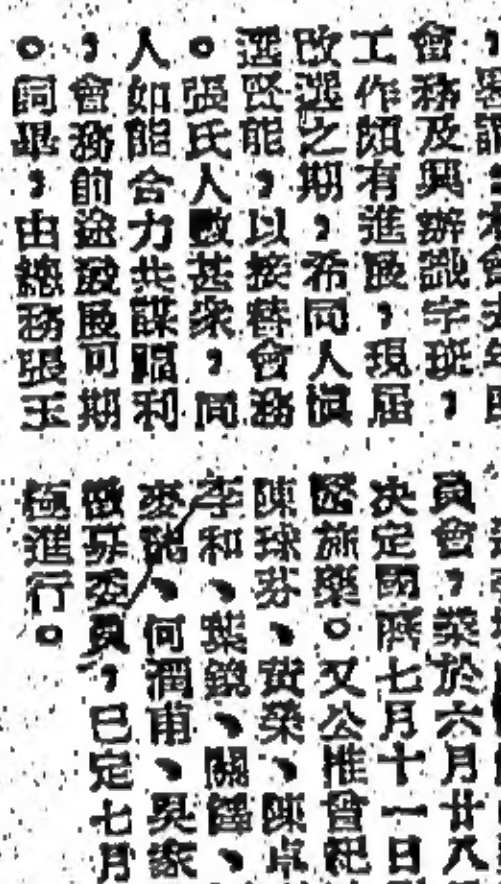 會務及興辦識字班，
工作頗有進展，現屆
改選之期，希同人慎
選賢能，以接替會務
。張氏人數甚衆，同
人如能合力共謀福利
，會務前途發展可期
。詞畢，由總務張玉
員會，業於六月廿八
决定國曆七月十一日
旅樂。又公推曾紀
陳球芬、黃榮、陳卓
李和、葉銳、關
麥 、何潤甫、吳家
徵募委員，已定七月
極進行。